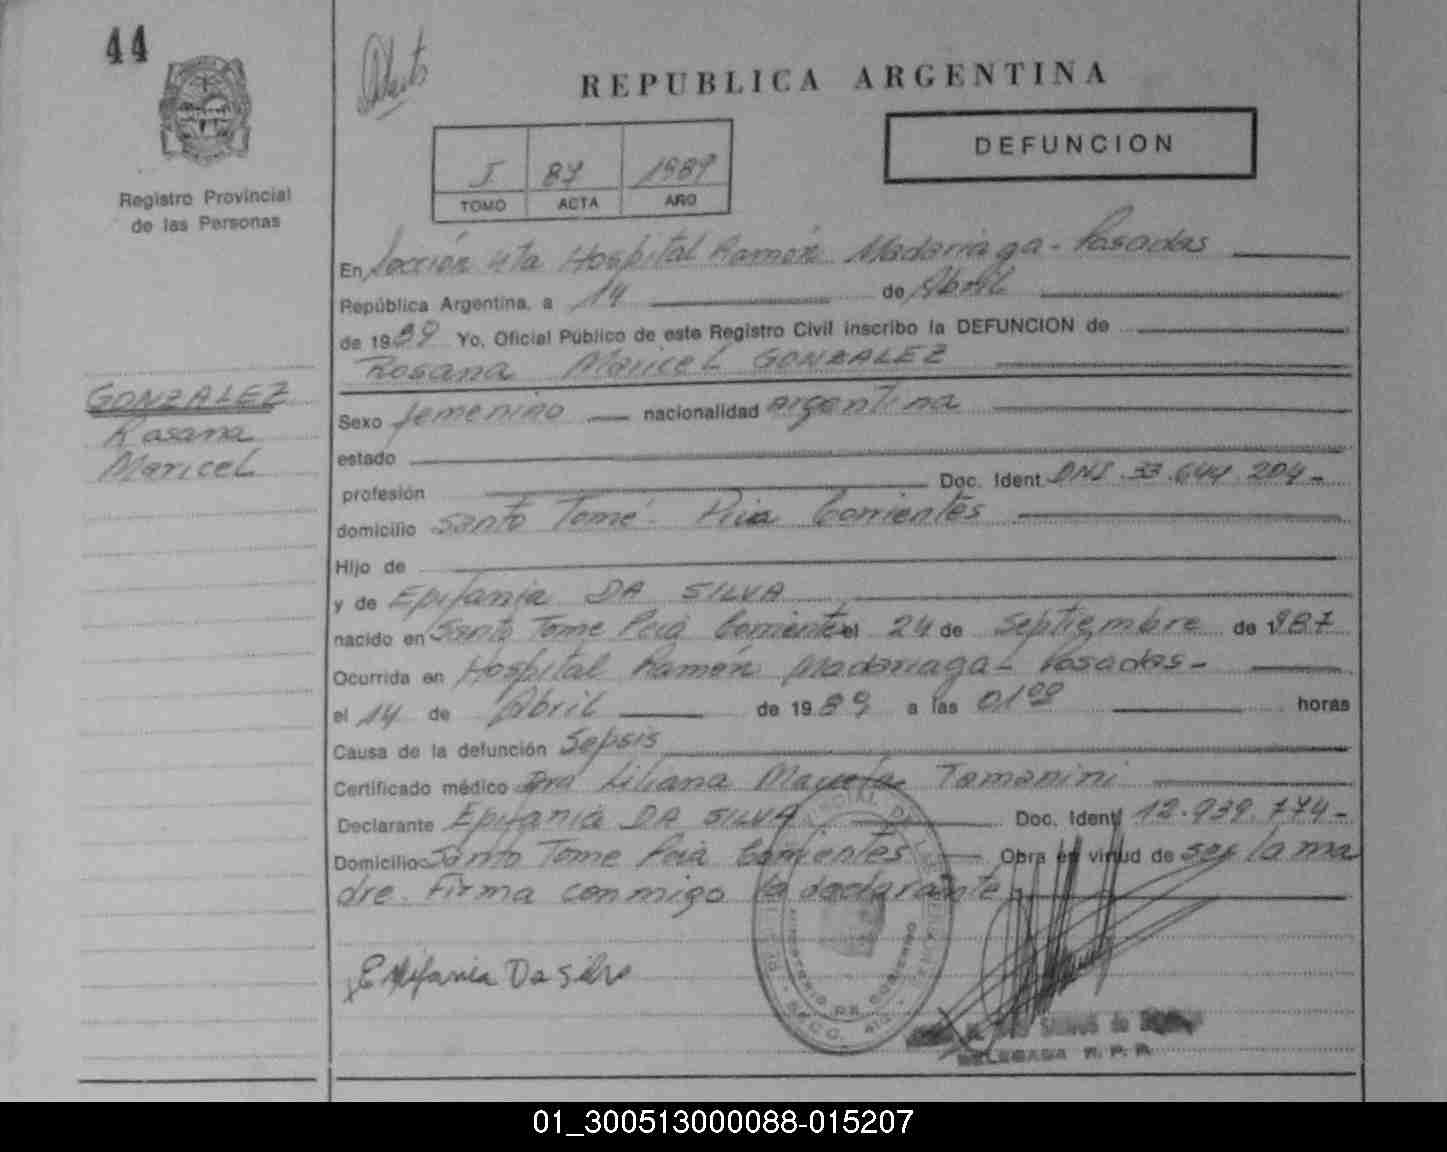 44
Registro Provincial
de las Personas
REPUBLICA ARGENTINA
DEFUNCION
I 87 1989
TOMO ACTA AÑO
En Sección 4ta Hospital Ramón Madariaga - Posadas
República Argentina, a 14 de Abril
de 1989 Yo, Oficial Público de este Registro Civil inscribo la DEFUNCION de
Rosana Maricel GONZALEZ
GONZALEZ
Rosana
Maricel
Sexo femenino nacionalidad argentina
estado
profesión Doc. Ident. DNI. 33.644.204-
domicilio Santo Tomé. Pcia Corrientes
Hijo de
y de Epifania DA SILVA
nacido en Santo Tome Pcia Corrientes el 24 de Septiembre de 1987
Ocurrida en Hospital Ramón Madariaga - Posadas -
el 14 de Abril de 1989 a las 01 00 horas
Causa de la defunción Sepsis
Certificado médico Dra Liliana Tamanini
Declarante Epifania DA SILVA Doc. Ident 12.939.774-
Domicilio Santo Tome Pcia Corrientes Obra en virtud de ser la ma
dre. Firma conmigo la declarante
Epifania Da Silva
DELEGADA R. P. P.
01_300513000088-015207